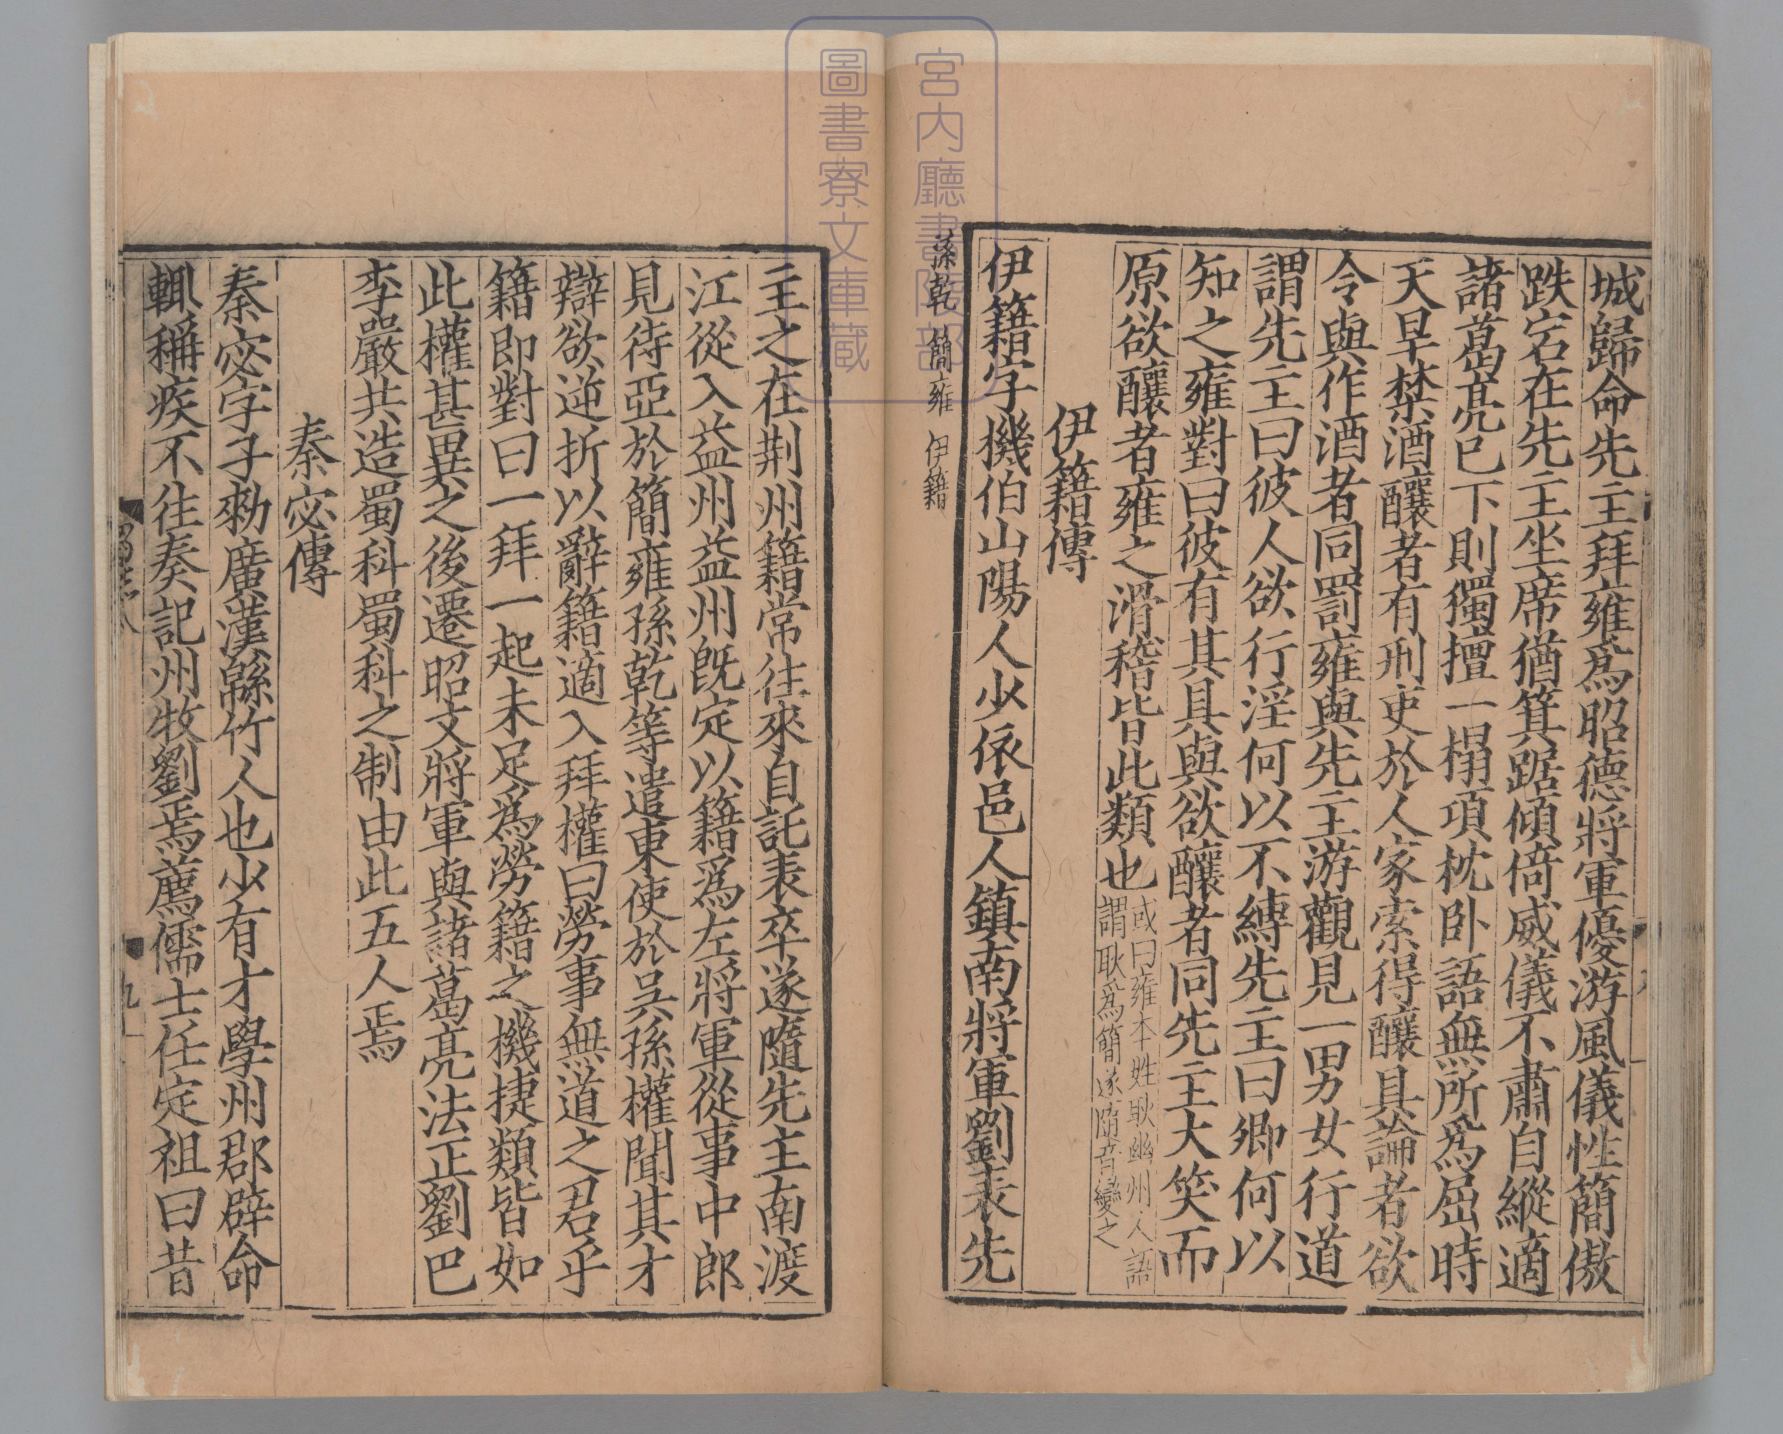 城歸命先主拜雍爲昭德將軍優游風儀性簡傲
跌宕在先主坐席猶箕踞傾倚威儀不肅自縱適
諸葛亮已下則獨擅一榻項枕卧語無所爲屈時
天旱禁酒釀者有刑吏於人家索得釀具論者欲
令與作酒者同罰雍與先主游觀見一男女行道
謂先主曰彼人欲行淫何以不縛先主曰卿何以
知之雍對曰彼有其具與欲釀者同先主大笑而
原欲釀者雍之滑稽皆此類也
或曰雍本姓耿幽州人語
謂耿爲簡遂隨音變之
伊籍傳
伊籍字機伯山陽人少依邑人鎮南將軍劉表先
孫乾 簡雍 伊籍
主之在荆州籍常往來自託表卒遂隨先主南渡
江從入益州益州旣定以籍爲左將軍從事中郎
見待亞於簡雍孫乾等遣東使於吳孫權聞其才
辯欲逆折以辭籍適入拜權曰勞事無道之君乎
籍即對曰一拜一起未足爲勞籍之機捷類皆如
此權甚異之後遷昭文將軍與諸葛亮法正劉巴
李嚴共造蜀科蜀科之制由此五人焉
秦宓傳
秦宓字子勑廣漢緜竹人也少有才學州郡辟命
輒稱疾不往奏記州牧劉焉薦儒士任定祖曰昔
蜀志八
九
宮内廳書陵部
圖書寮文庫藏